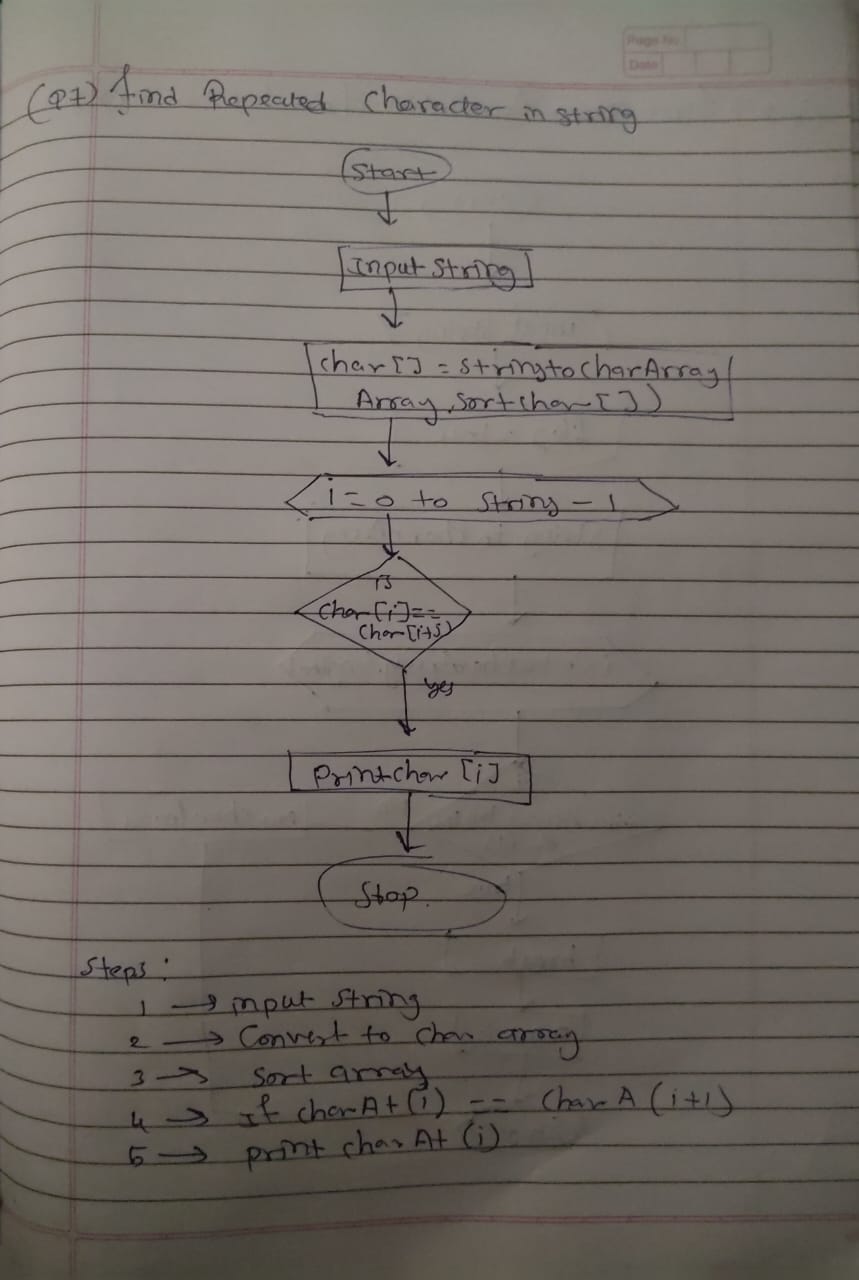 Page No
Date
(Q7) find Repeated Character in string
Start
Input String
char[] = stringtoCharArray
Array.sort(char[])
i = 0 to String - 1
is
Char[i]==
Char[i+1]
yes
print char [i]
Stop.
Steps :
1 → input string
2 → Convert to char array
3 → sort array
4 → If charAt(i) == CharA(i+1)
5 → print charAt (i)